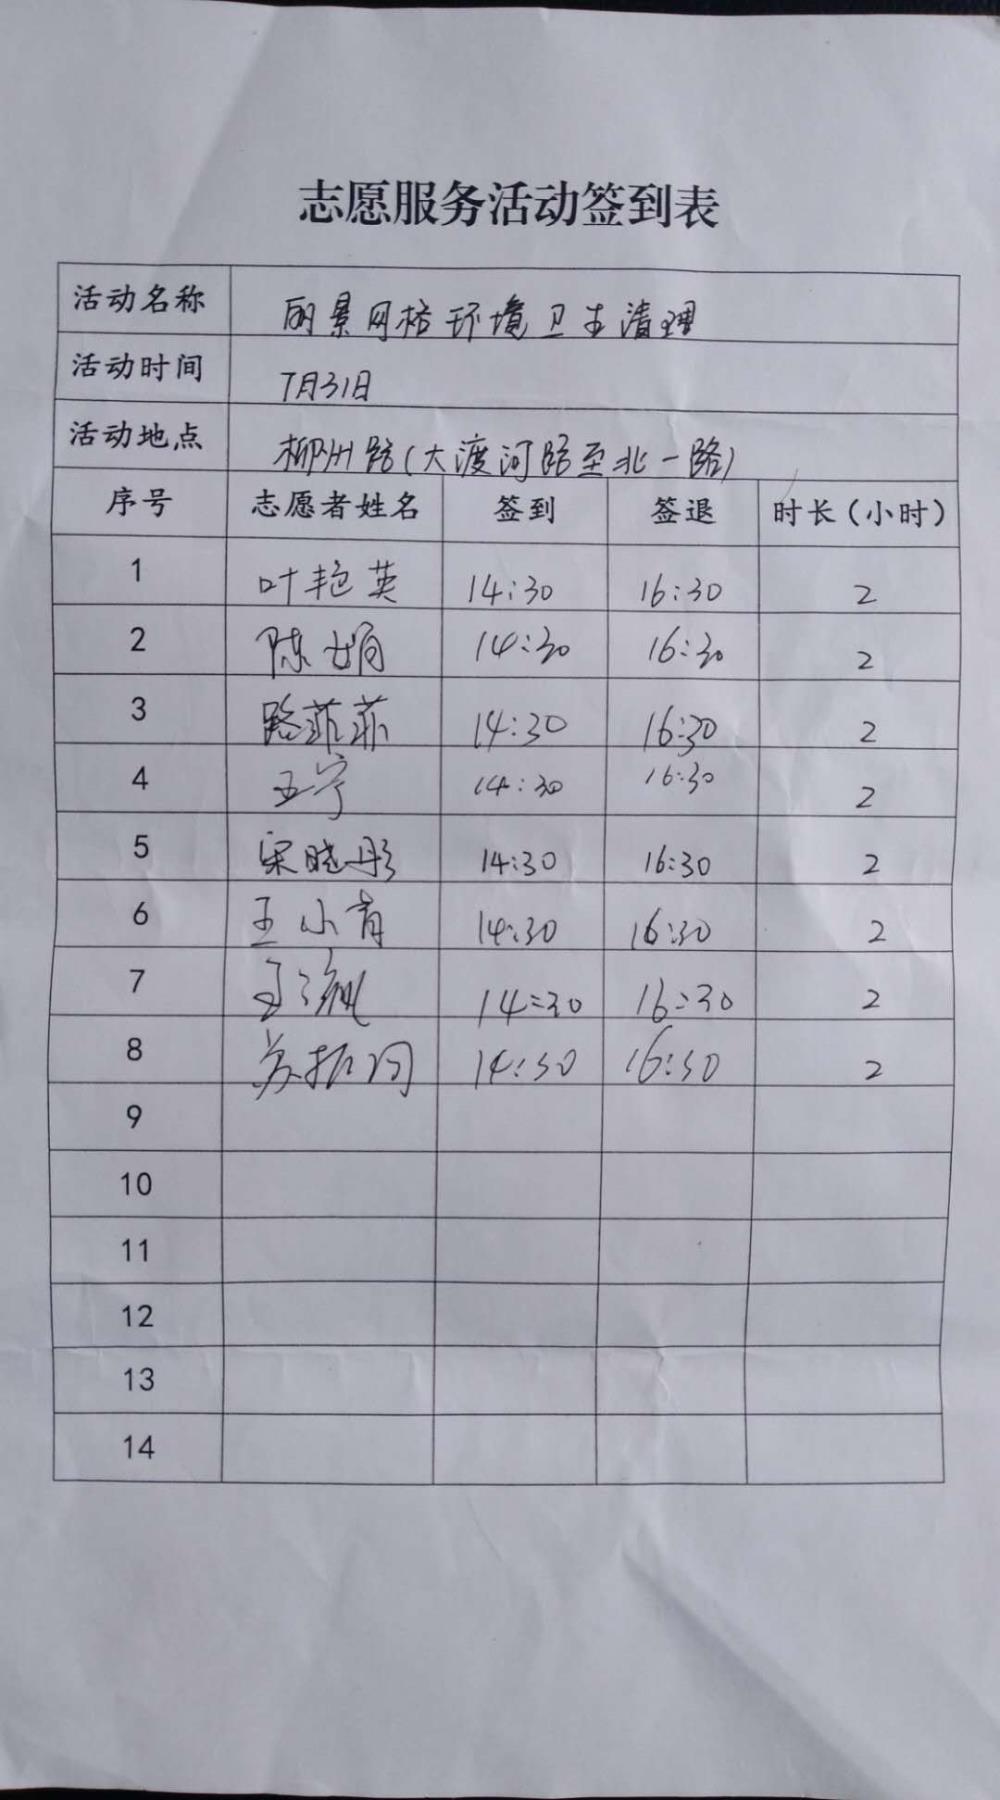 志愿服务活动签到表
活动名称 丽景网格环境卫生清理
活动时间 7月31日
活动地点 柳州路(大渡河路至北一路)
序号 志愿者姓名 签到 签退 时长(小时)
1 叶艳英 14:30 16:30 2
2 陈娟 14:30 16:30 2
3 路菲菲 14:30 16:30 2
4 王宁 14:30 16:30 2
5 宋晓彤 14:30 16:30 2
6 王小青 14:30 16:30 2
7 14:30 16:30 2
8 14:30 16:30 2
9
10
11
12
13
14